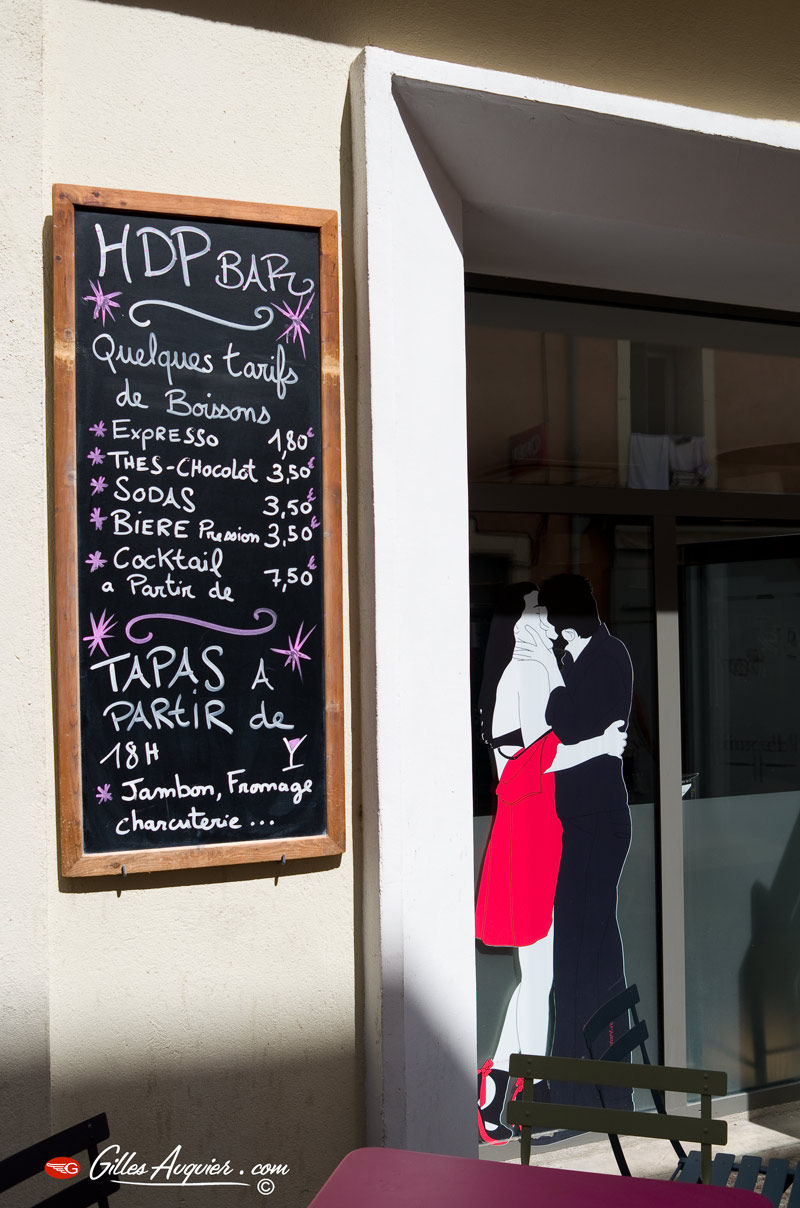 HDP BAR
Quelques tarifs
de Boissons
Expresso 1,80€
THES-CHOCOLOT 3,50€
SODAS 3,50€
BIERE Pression 3,50€
Cocktail
a Partir de 7,50€
TAPAS A
PARTIR de
18H
Jambon, Fromage
charcuterie...
G Gilles Auquier.com ©